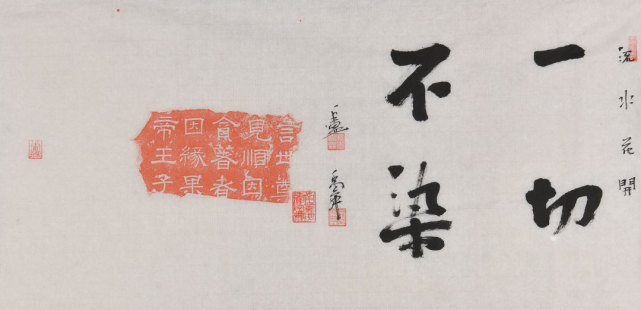 流水花開
一切
不染
言世尊
見順因
貪著者
因緣果
帝王子